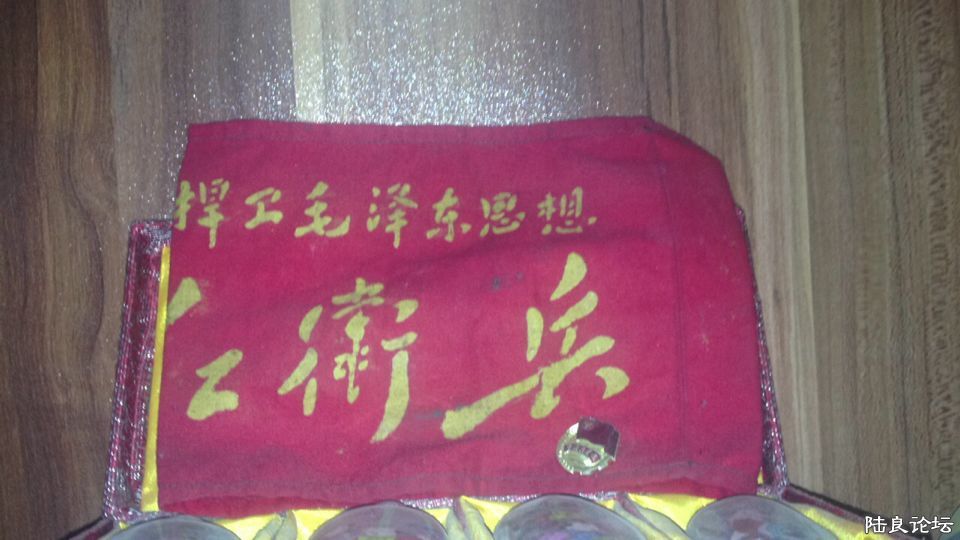 捍卫毛泽东思想
红衛兵
陆良论坛